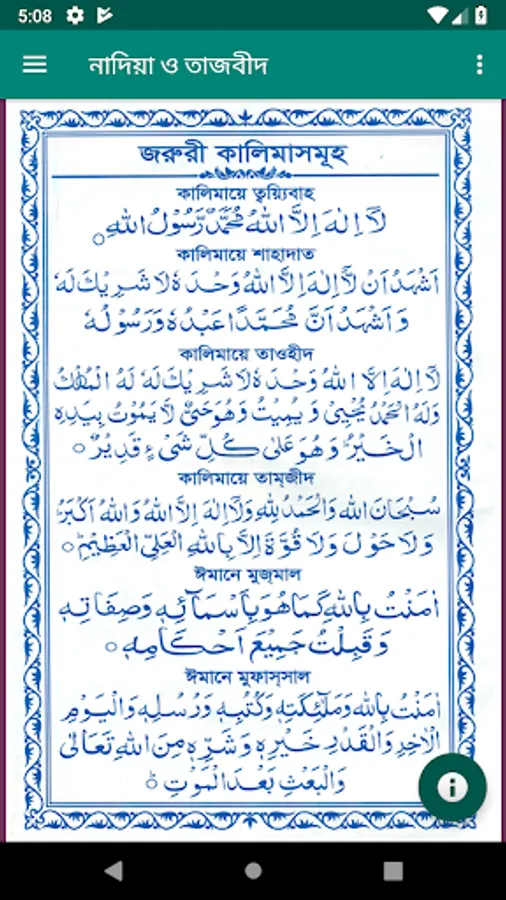 5:08
নাদিয়া ও তাজবীদ
জরুরী কালিমাসমূহ
কালিমায়ে ত্বয়্যিবাহ
لَاۤ اِلٰهَ اِلَّا اللهُ مُحَمَّدٌ رَّسُوْلُ اللهِ ○
কালিমায়ে শাহাদাত
اَشْهَدُ اَنْ لَّاۤ اِلٰهَ اِلَّا اللهُ وَحْدَهٗ لَا شَرِيْكَ لَهٗ
وَ اَشْهَدُ اَنَّ مُحَمَّدًا عَبْدُهٗ وَ رَسُوْلُهٗ
কালিমায়ে তাওহীদ
لَاۤ اِلٰهَ اِلَّا اللهُ وَحْدَهٗ لَا شَرِيْكَ لَهٗ لَهُ الْمُلْكُ
وَلَهُ الْحَمْدُ يُحْيِىْ وَ يُمِيْتُ وَ هُوَ حَىٌّ لَّا يَمُوْتُ بِيَدِهِ
الْخَيْرُ وَ هُوَ عَلٰى كُلِّ شَىْءٍ قَدِيْرٌ ○
কালিমায়ে তাম্‌জীদ
سُبْحَانَ اللهِ وَالْحَمْدُ لِلّٰهِ وَلَاۤ اِلٰهَ اِلَّا اللهُ وَاللهُ اَكْبَرُ
وَلَا حَوْلَ وَلَا قُوَّةَ اِلَّا بِاللهِ الْعَلِىِّ الْعَظِيْمِ ○
ঈমানে মুজ্‌মাল
اٰمَنْتُ بِاللهِ كَمَا هُوَ بِاَسْمَآئِهٖ وَصِفَاتِهٖ
وَ قَبِلْتُ جَمِيْعَ اَحْكَامِهٖ ○
ঈমানে মুফাস্‌সাল
اٰمَنْتُ بِاللهِ وَمَلٰٓئِكَتِهٖ وَكُتُبِهٖ وَرُسُلِهٖ وَالْيَوْمِ
الْاٰخِرِ وَالْقَدْرِ خَيْرِهٖ وَ شَرِّهٖ مِنَ اللهِ تَعَالٰى
وَالْبَعْثِ بَعْدَ الْمَوْتِ ○